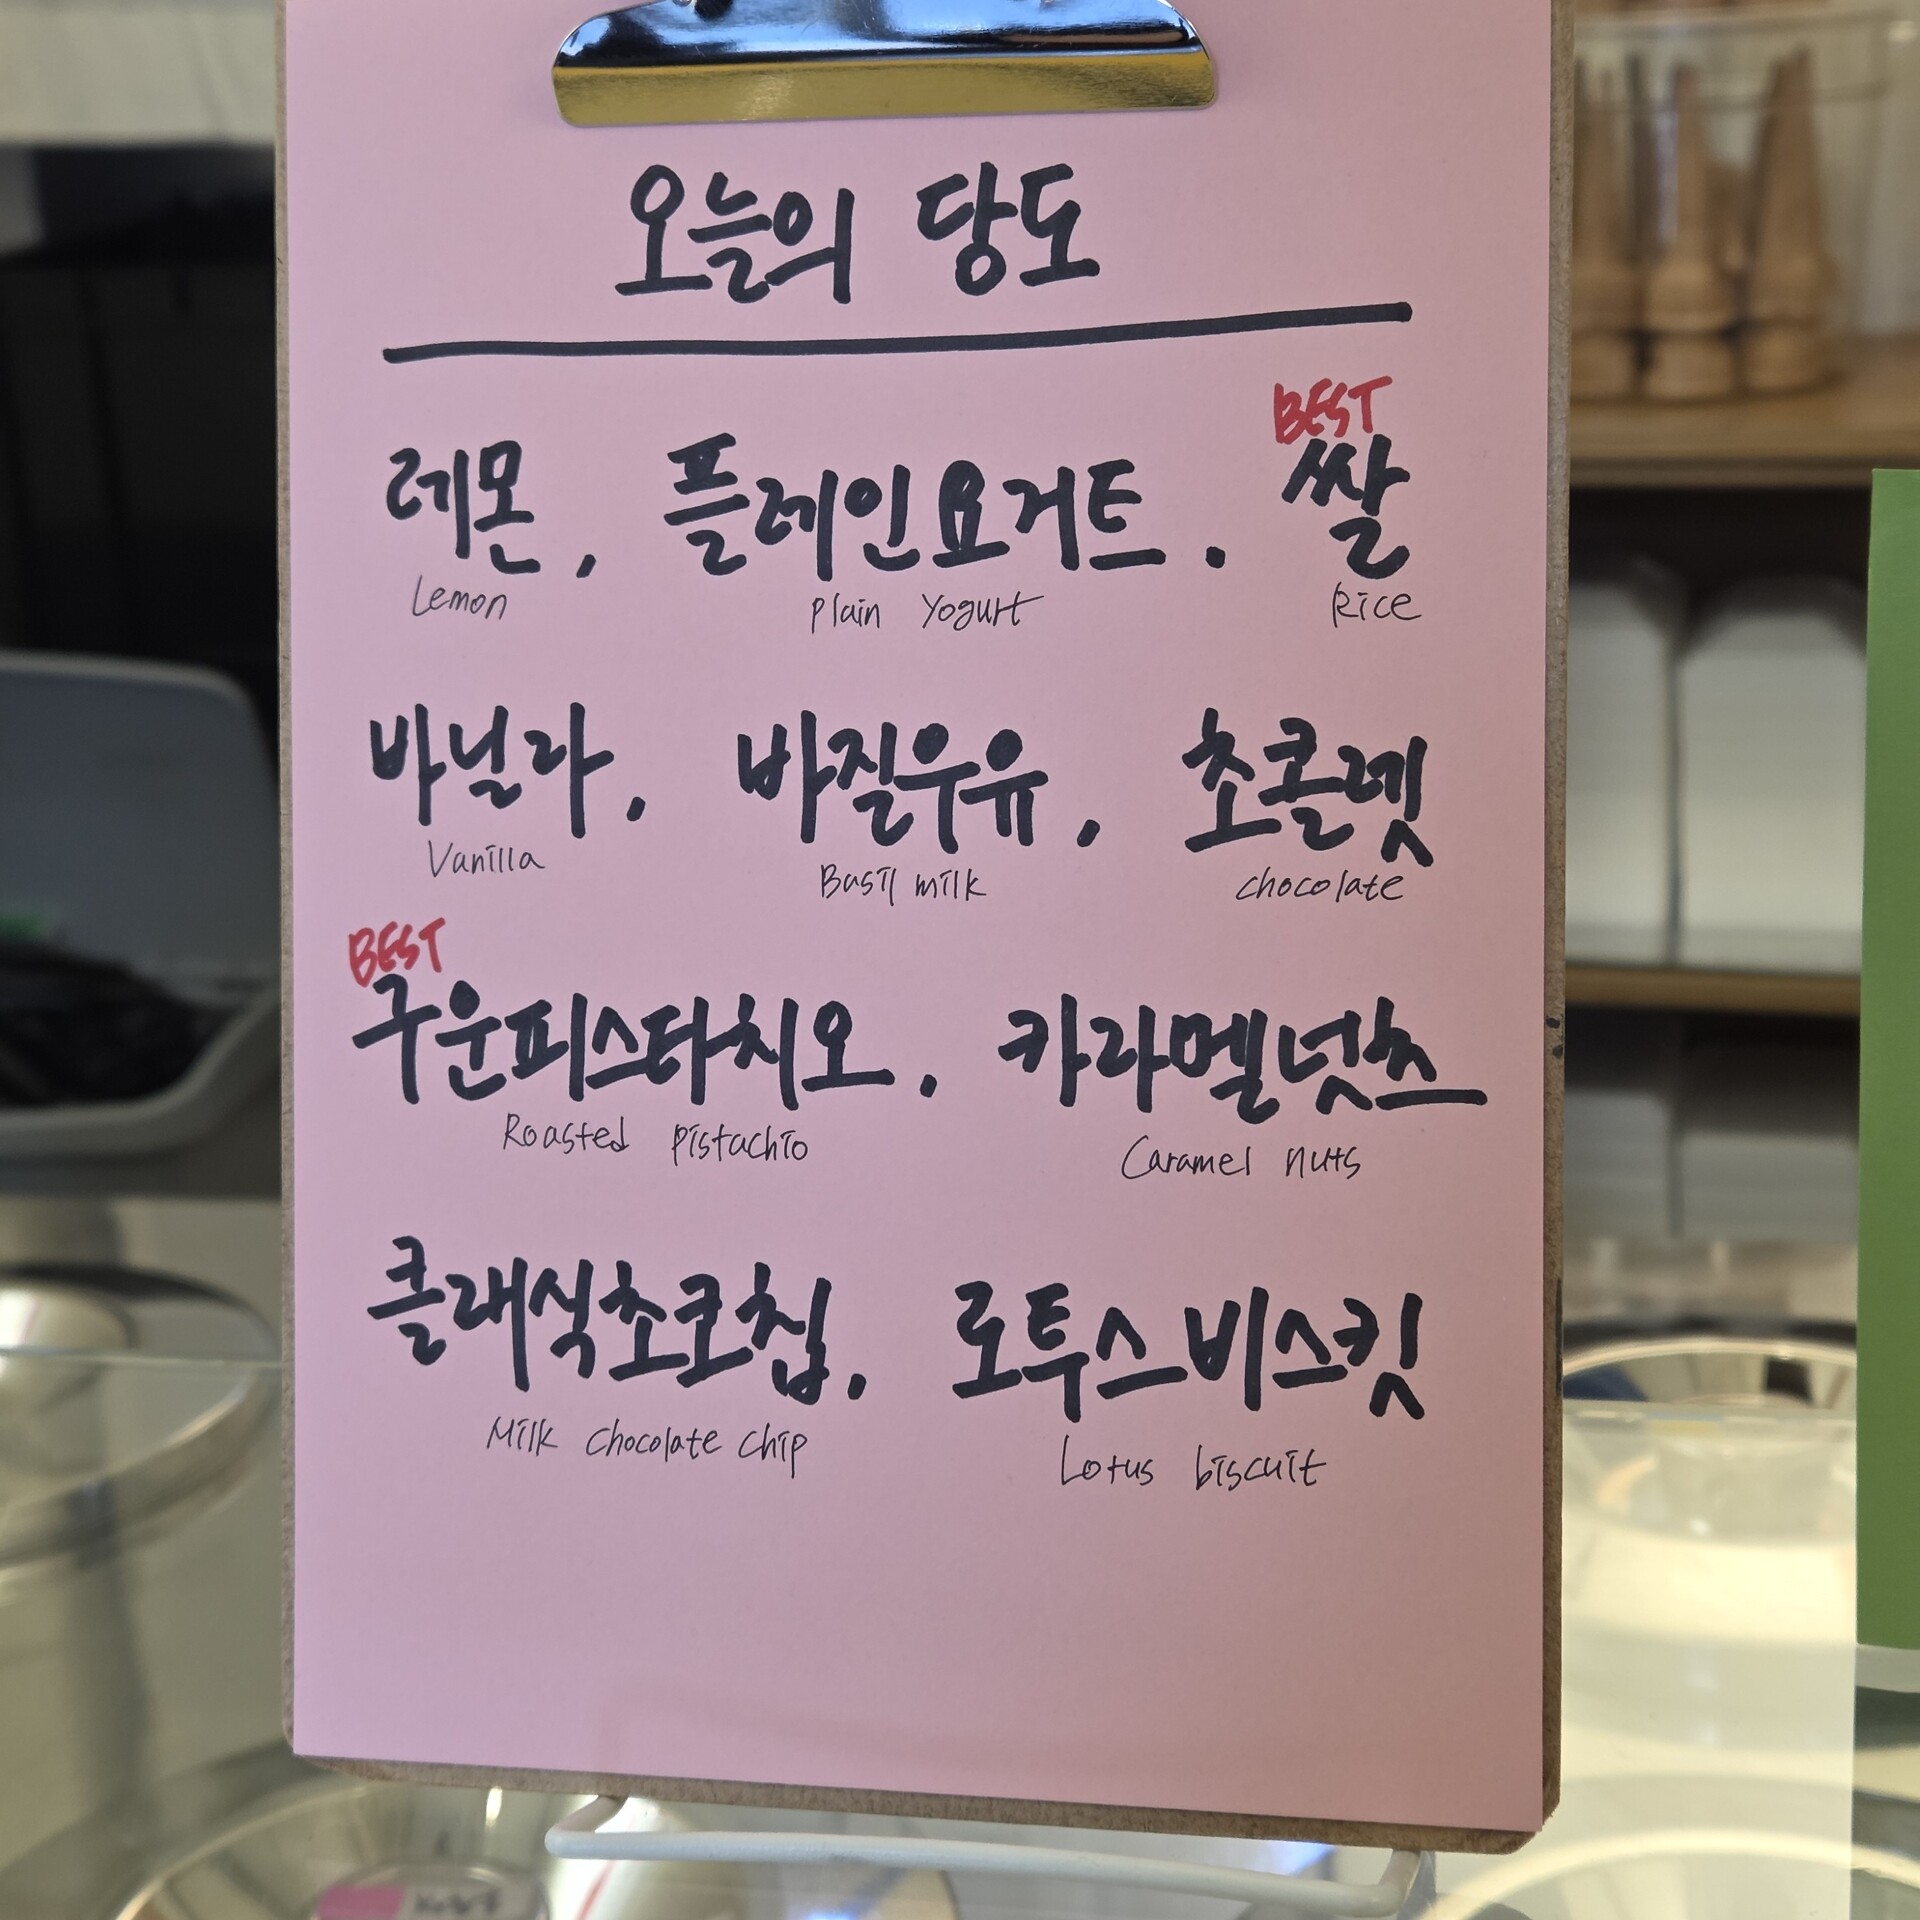 오늘의 당도
BEST
레몬, 플레인요거트, 쌀
Lemon Plain Yogurt Rice
바닐라, 바질우유, 초콜렛
Vanilla Basil milk chocolate
BEST
구운피스타치오, 카라멜넛츠
Roasted pistachio Caramel nuts
클래식초코칩, 로투스비스킷
Milk chocolate chip Lotus biscuit